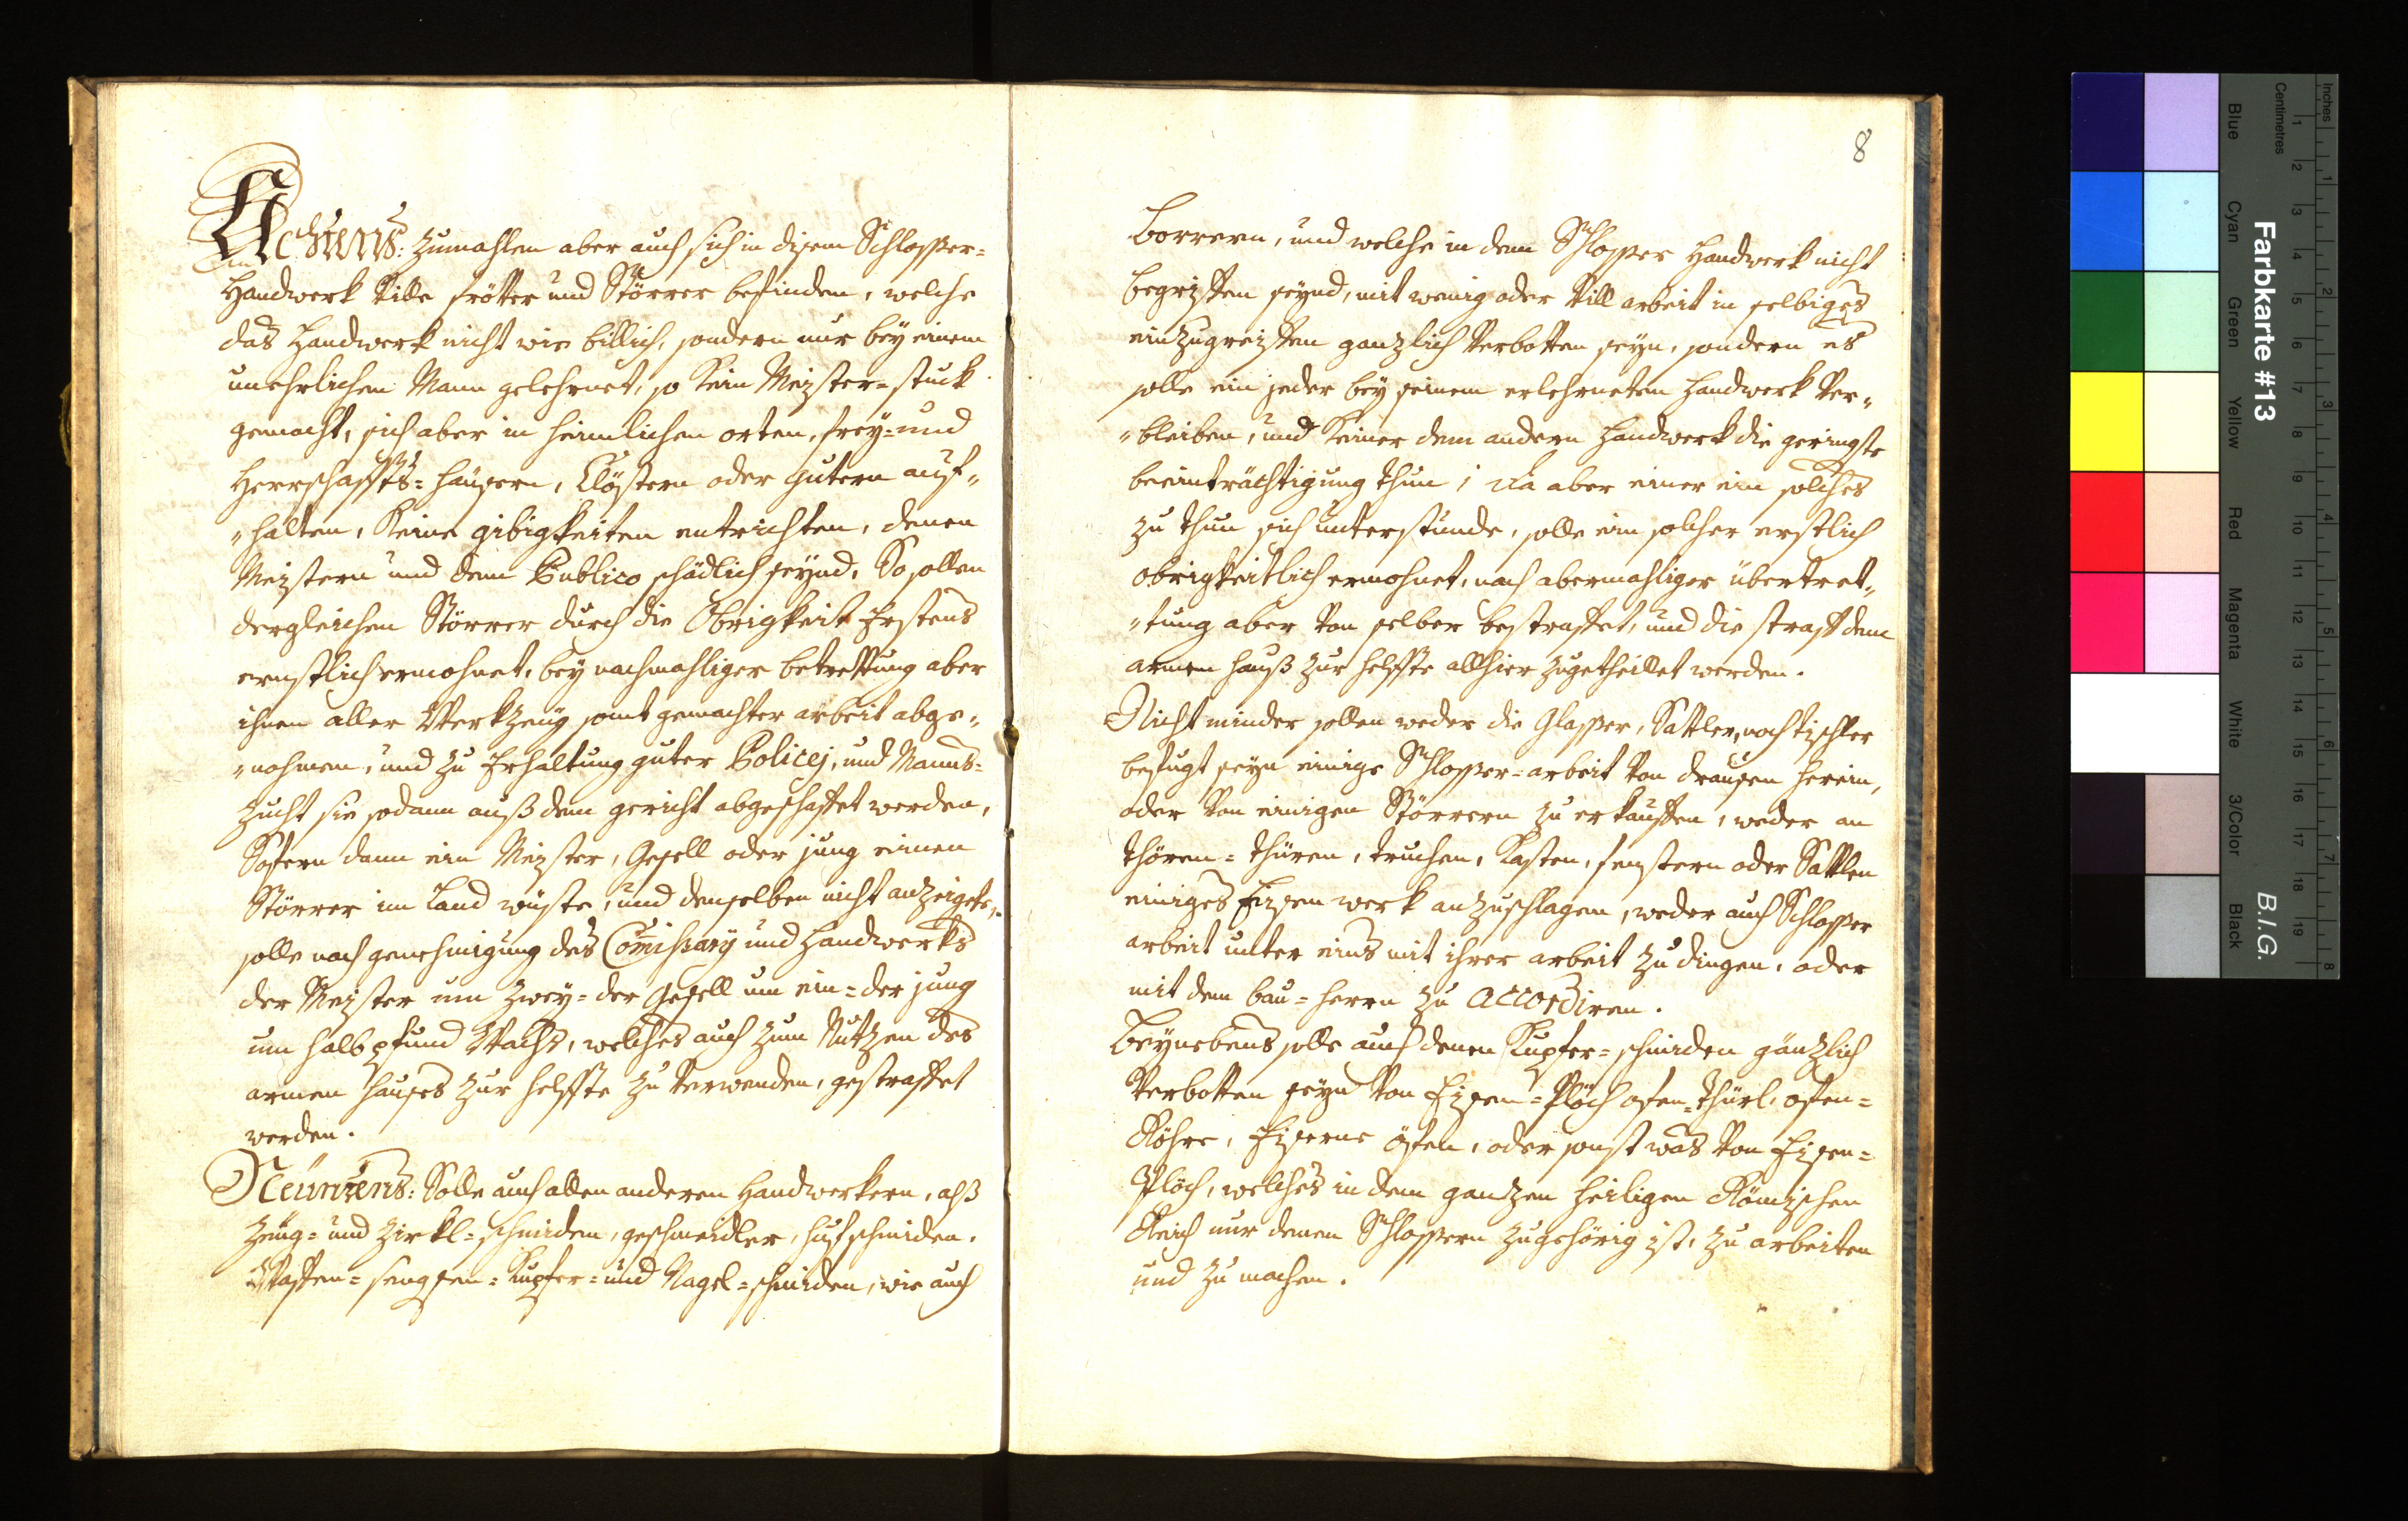 Achtens: Zumahlen aber auch sich in disem Schlosser=
Handwerk Ville frötter und Störrer befinden, welche
das Handwerk nicht wie billich, sondern nur bey einem
unehrlichen Mann gelehrnet, so kein Meister=stuck
gemacht, sich aber in heimlichen orten, frey= und
Herrschaffts= häusern, Clöstern oder gutern auf„
„halten, keine gibigkeiten entrichten, denen
Meistern und dem Publico schädlich seynd, So sollen
dergleichen Störrer durch die Obrigkeit Erstens
ernstlich ermahnet, bey nachmahliger betrettung aber
ihnen aller Werkzeug samt gemachter arbeit abge„
„nohmen, und zu Erhaltung guter Policej, und Manns=
zucht sie sodann auß dem gericht abgeschaffet werden,
Sofern dann ein Meister, Gesell oder jung einen
Störrer im Land wüste, und denselben nicht anzeigete,
solle nach genehmigung des Com̄issary und Handwerks
der Meister um zwey= der Gesell um ein= der jung
um halb pfund Wachs, welches auch zum Nutzen des
armen hauses zur helffte zu verwenden, gestraffet
werden.
Neuntens: Solle auch allen anderen Handwerkern, alß
zeug= und zirkl= schmiden, geschmeidler, hufschmiden,
Waffen= sengsen= Kupfer= und Nagel= schmiden, wie auch
8
borrern, und welche in dem Schlosser Handwerk nicht
begriffen seynd, mit wenig oder Vill arbeit in selbiges
einzugreiffen ganzlich Verbotten seyn, sondern es
solle ein jeder bey seinem erlehrneten Handwerk Ver„
„bleiben, und keiner dem andern Handwerk die geringste
beeinträchtigung thun; da aber einer ein solches
zu thun sich unterstunde, solle ein solcher erstlich
obrigkeitlich ermahnet, nach abermahliger übertret„
„tung aber von selber bestraffet, und die straff dem
armen hauß zur helffte allhier zugetheillet werden.
Nicht minder sollen weder die Glasser, Sattler, noch tischler
befugt seyn einige Schlosser= arbeit von drausen herein,
oder von einigen Störrern zu erkauffen, weder an
thören= thüren, truchen, Kasten, fenstern oder Sattlen
einiges Eisen werk anzuschlagen, weder auch Schlosser
arbeit unter eins mit ihrer arbeit zu dingen, oder
mit dem bau= herrn zu accordiren.
Beynebens solle auch denen Kupfer= schmiden gänzlich
Verbotten seyn von Eisen= Plöch ofen= thürl, ofen=
Röhre, Eiserne öfen, oder sonst was von Eisen=
Plöch, welches in dem ganzen heiligen Römischen
Reich nur denen Schlossern zugehörig ist, zu arbeiten
und zu machen.
Farbkarte #13
B.I.G.
Inches
Centimetres
1 2 3 4 5 6 7 8 9 10 11 12 13 14 15 16 17 18 19
1 2 3 4 5 6 7 8
Blue
Cyan
Green
Yellow
Red
Magenta
White
3/Color
Black